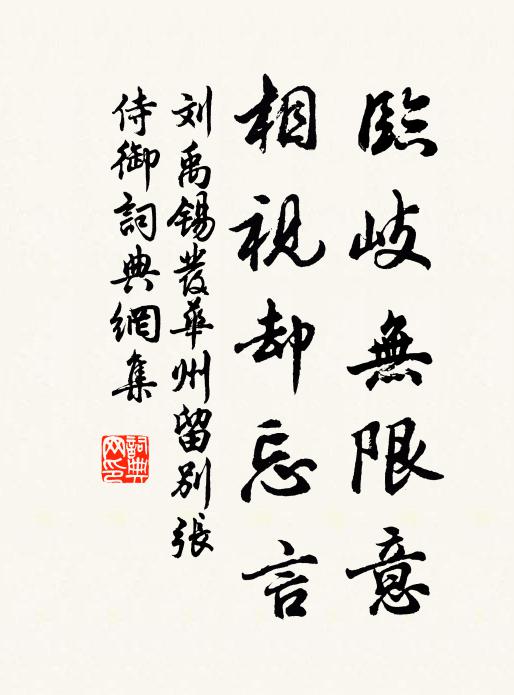 臨歧無限意
相視却忘言
刘禹锡發華州留别張
侍御詞典網集
詞典网印